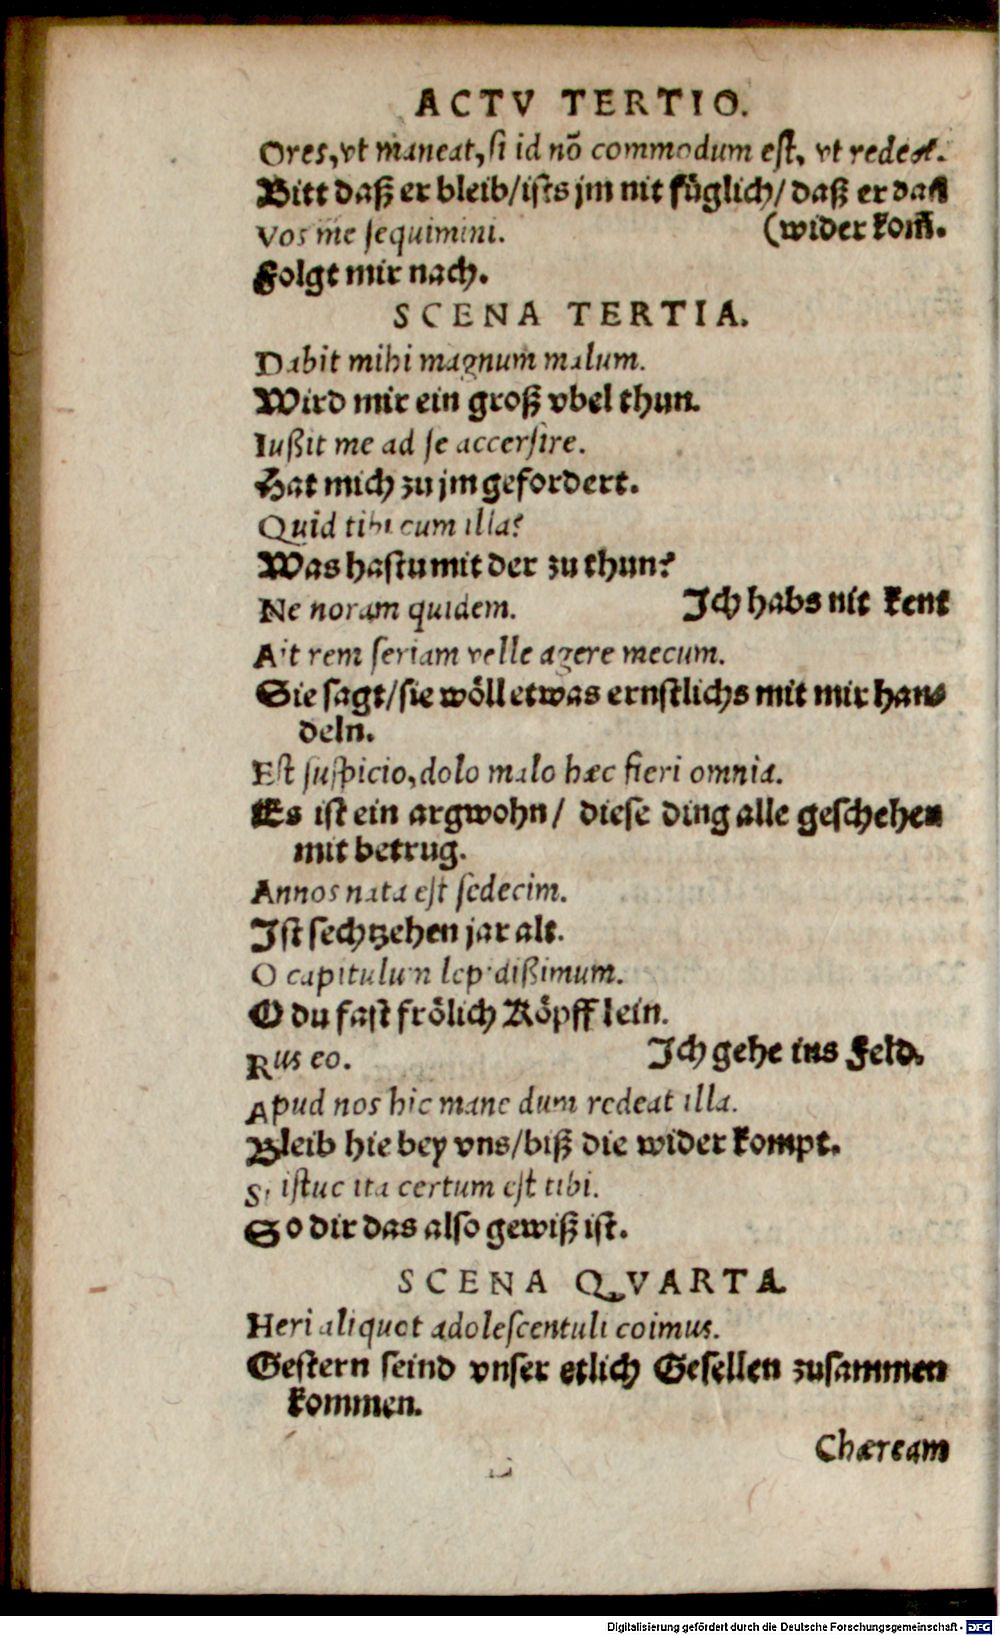 ACTV TERTIO.
Ores, vt maneat, si id nõ commodum est, vt redeat.
Bitt daß er bleib/ists jm nit füglich/ daß er dañ
Vos me sequimini. (wider kom̃.
Folgt mir nach.
SCENA TERTIA.
Dabit mihi magnum malum.
Wird mir ein groß vbel thun.
Iußit me ad se accersire.
Hat mich zu jm gefordert.
Quid tibi cum illa?
Was hastu mit der zu thun?
Ne noram quidem. Ich habs nit kent
Ait rem seriam velle agere mecum.
Sie sagt/sie wöll etwas ernstlichs mit mir han-
deln.
Est suspicio, dolo malo hæc fieri omnia.
Es ist ein argwohn/ diese ding alle geschehen
mit betrug.
Annos nata est sedecim.
Ist sechtzehen jar alt.
O capitulum lepidißimum.
O du fast frölich Köpfflein.
Rus eo. Ich gehe ins Feld.
Apud nos hic mane dum redeat illa.
Bleib hie bey vns/biß die wider kompt.
Si istuc ita certum est tibi.
So dir das also gewiß ist.
SCENA QVARTA.
Heri aliquot adolescentuli coimus.
Gestern seind vnser etlich Gesellen zusammen
kommen.
Chæream
Digitalisierung gefördert durch die Deutsche Forschungsgemeinschaft - DFG